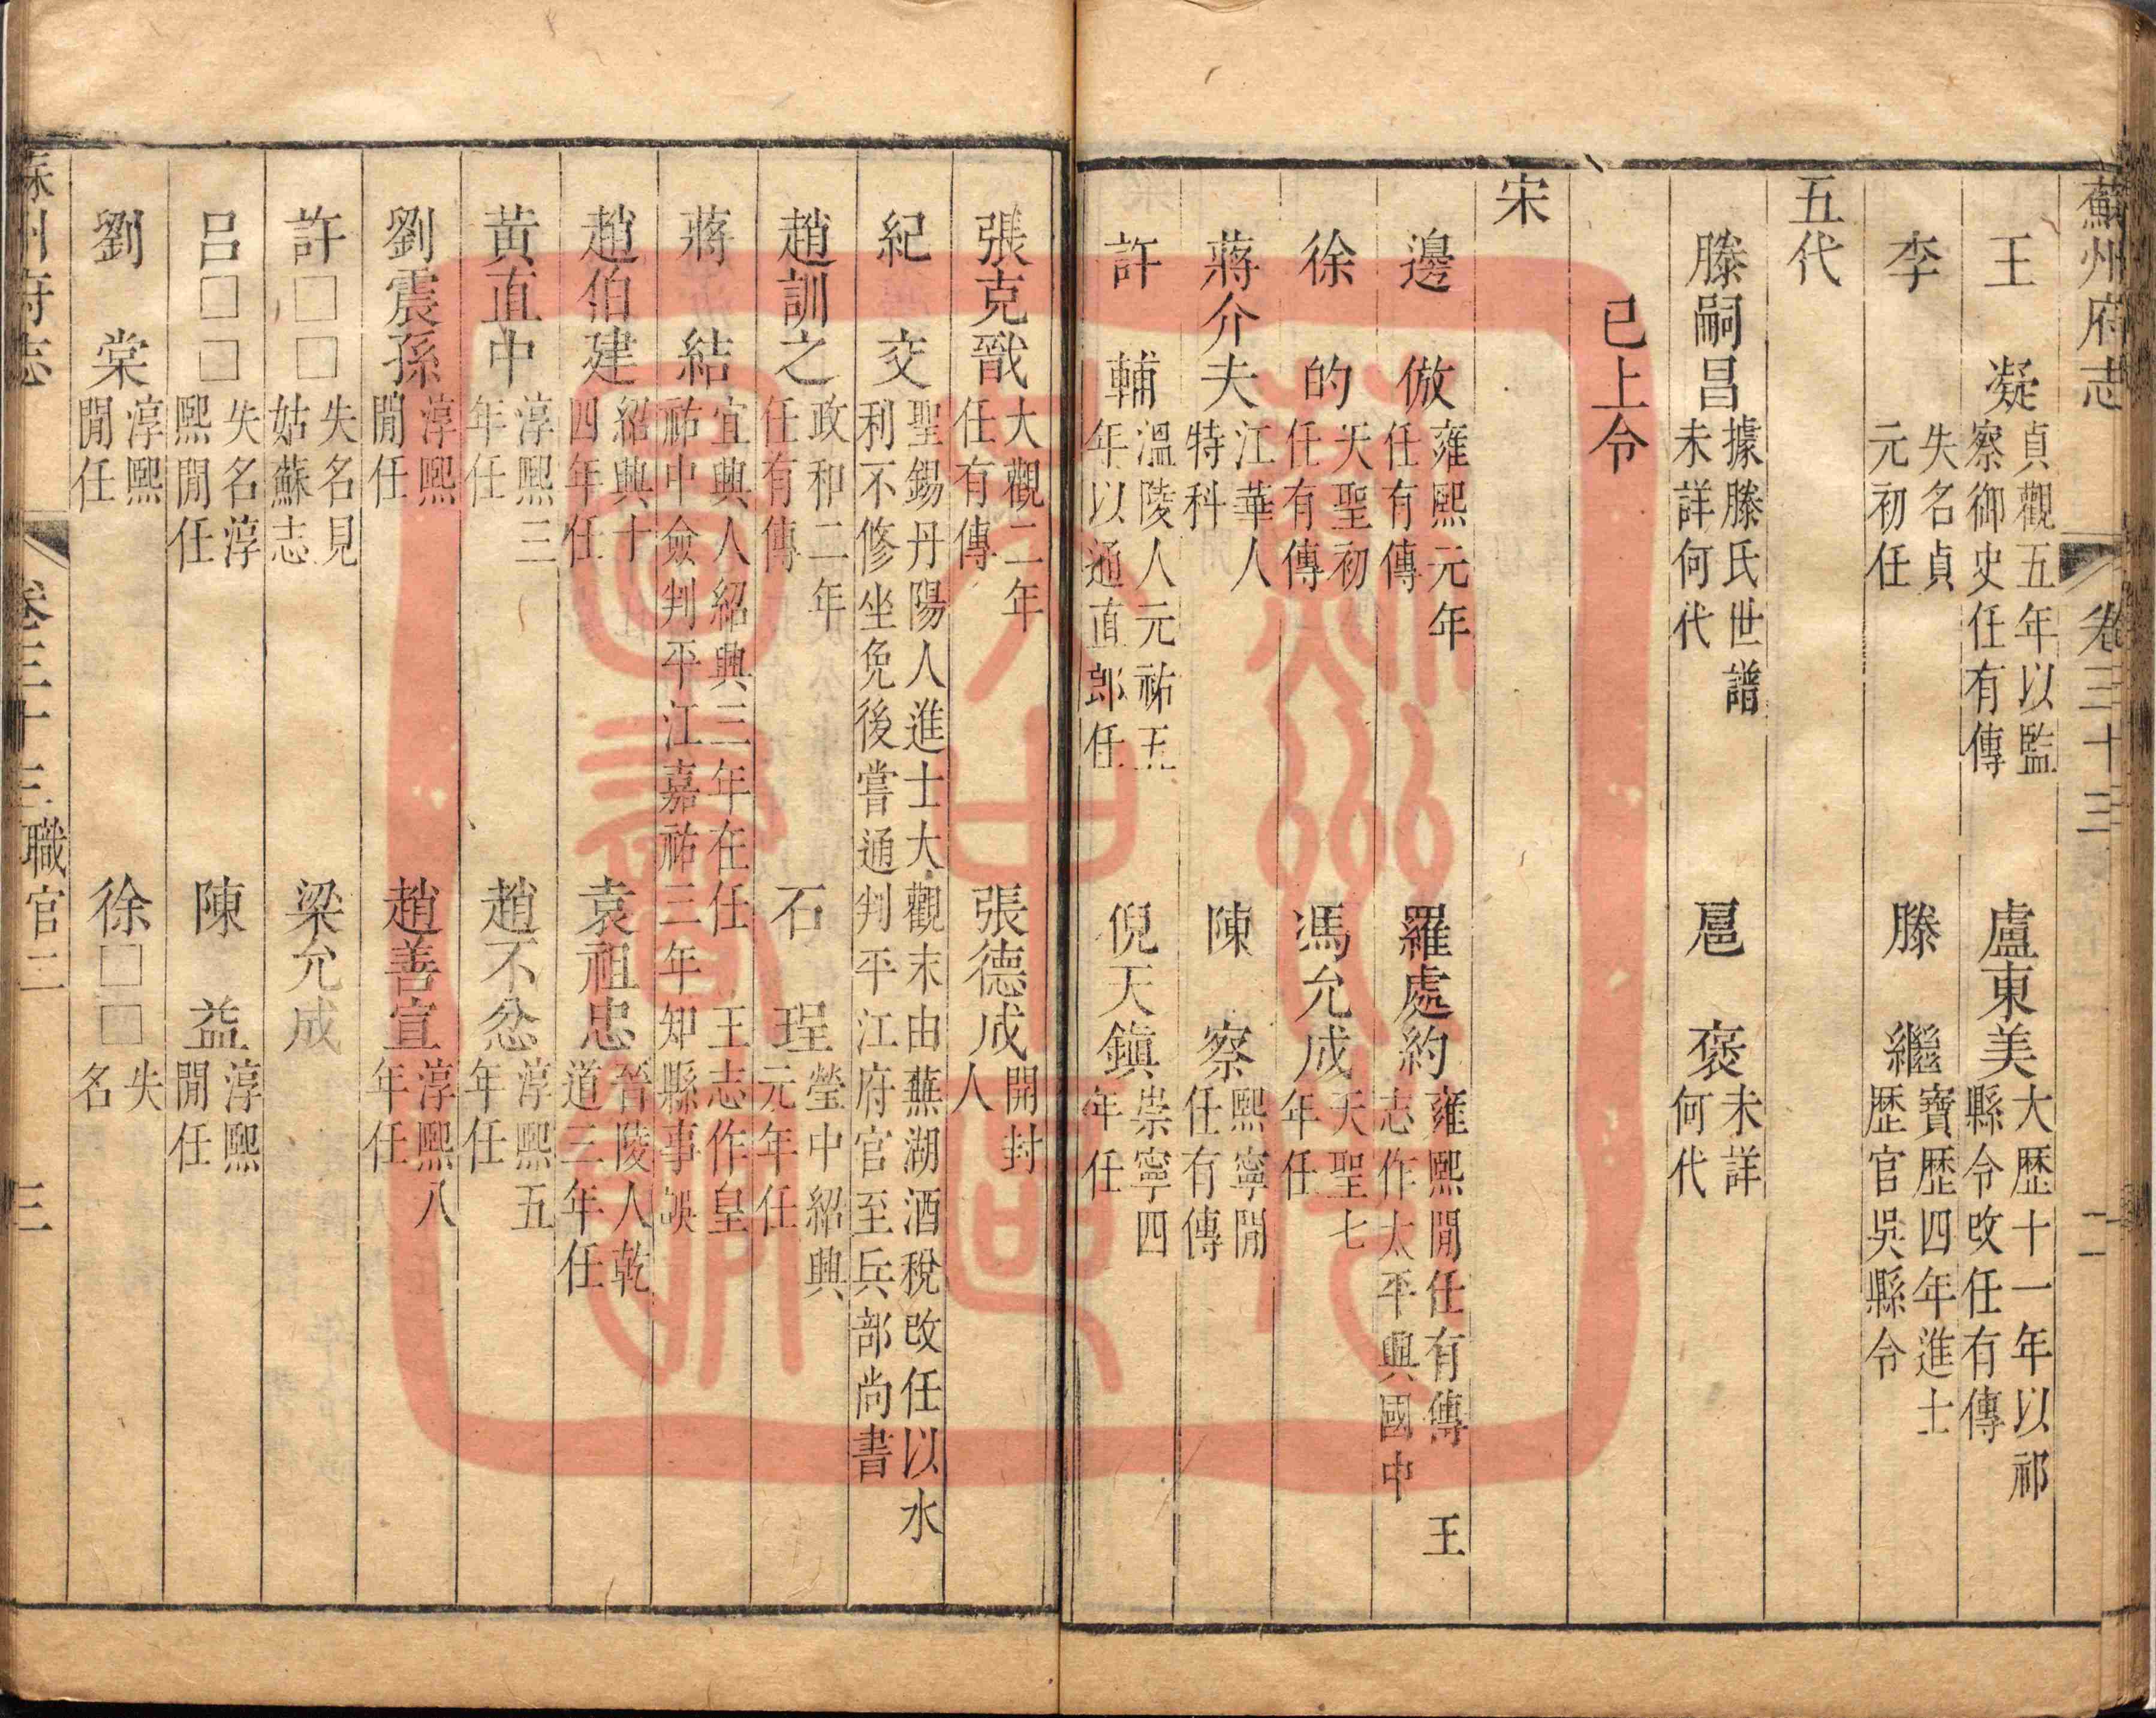 蘇州府志 卷三十三 二
王 凝 貞觀五年以監察御史任有傳 盧東美 大歷十一年以祁縣令改任有傳
李 失名貞元初任 滕 繼 寶歷四年進士歷官吳縣令
五代
滕嗣昌 據滕氏世譜未詳何代 扈 褒 未詳何代
已上令
宋
邊 倣 雍熙元年任有傳 羅處約 雍熙閒任有傳 王志作太平興國中
徐 的 天聖初任有傳 馮允成 天聖七年任
蔣介夫 江華人特科 陳 察 熙寧閒任有傳
許 輔 溫陵人元祐五年以通直郎任 倪天鎮 崇寧四年任
張克戩 大觀二年任有傳 張德成 開封人
紀 交 聖錫丹陽人進士大觀末由蕪湖酒稅改任以水利不修坐免後嘗通判平江府官至兵部尚書
趙訓之 政和二年任有傳 石 珵 瑩中紹興元年任
蔣 結 宜興人紹興三年在任 王志作皇祐中僉判平江嘉祐三年知縣事誤
趙伯建 紹興十四年任 袁祖忠 晉陵人乾道三年任
黃直中 淳熙三年任 趙不忿 淳熙五年任
劉震孫 淳熙閒任 趙善宣 淳熙八年任
許□□ 失名見姑蘇志 梁允成
呂□□ 失名淳熙閒任 陳 益 淳熙閒任
劉 棠 淳熙閒任 徐□□ 失名
蘇州府志 卷三十三 職官二 三